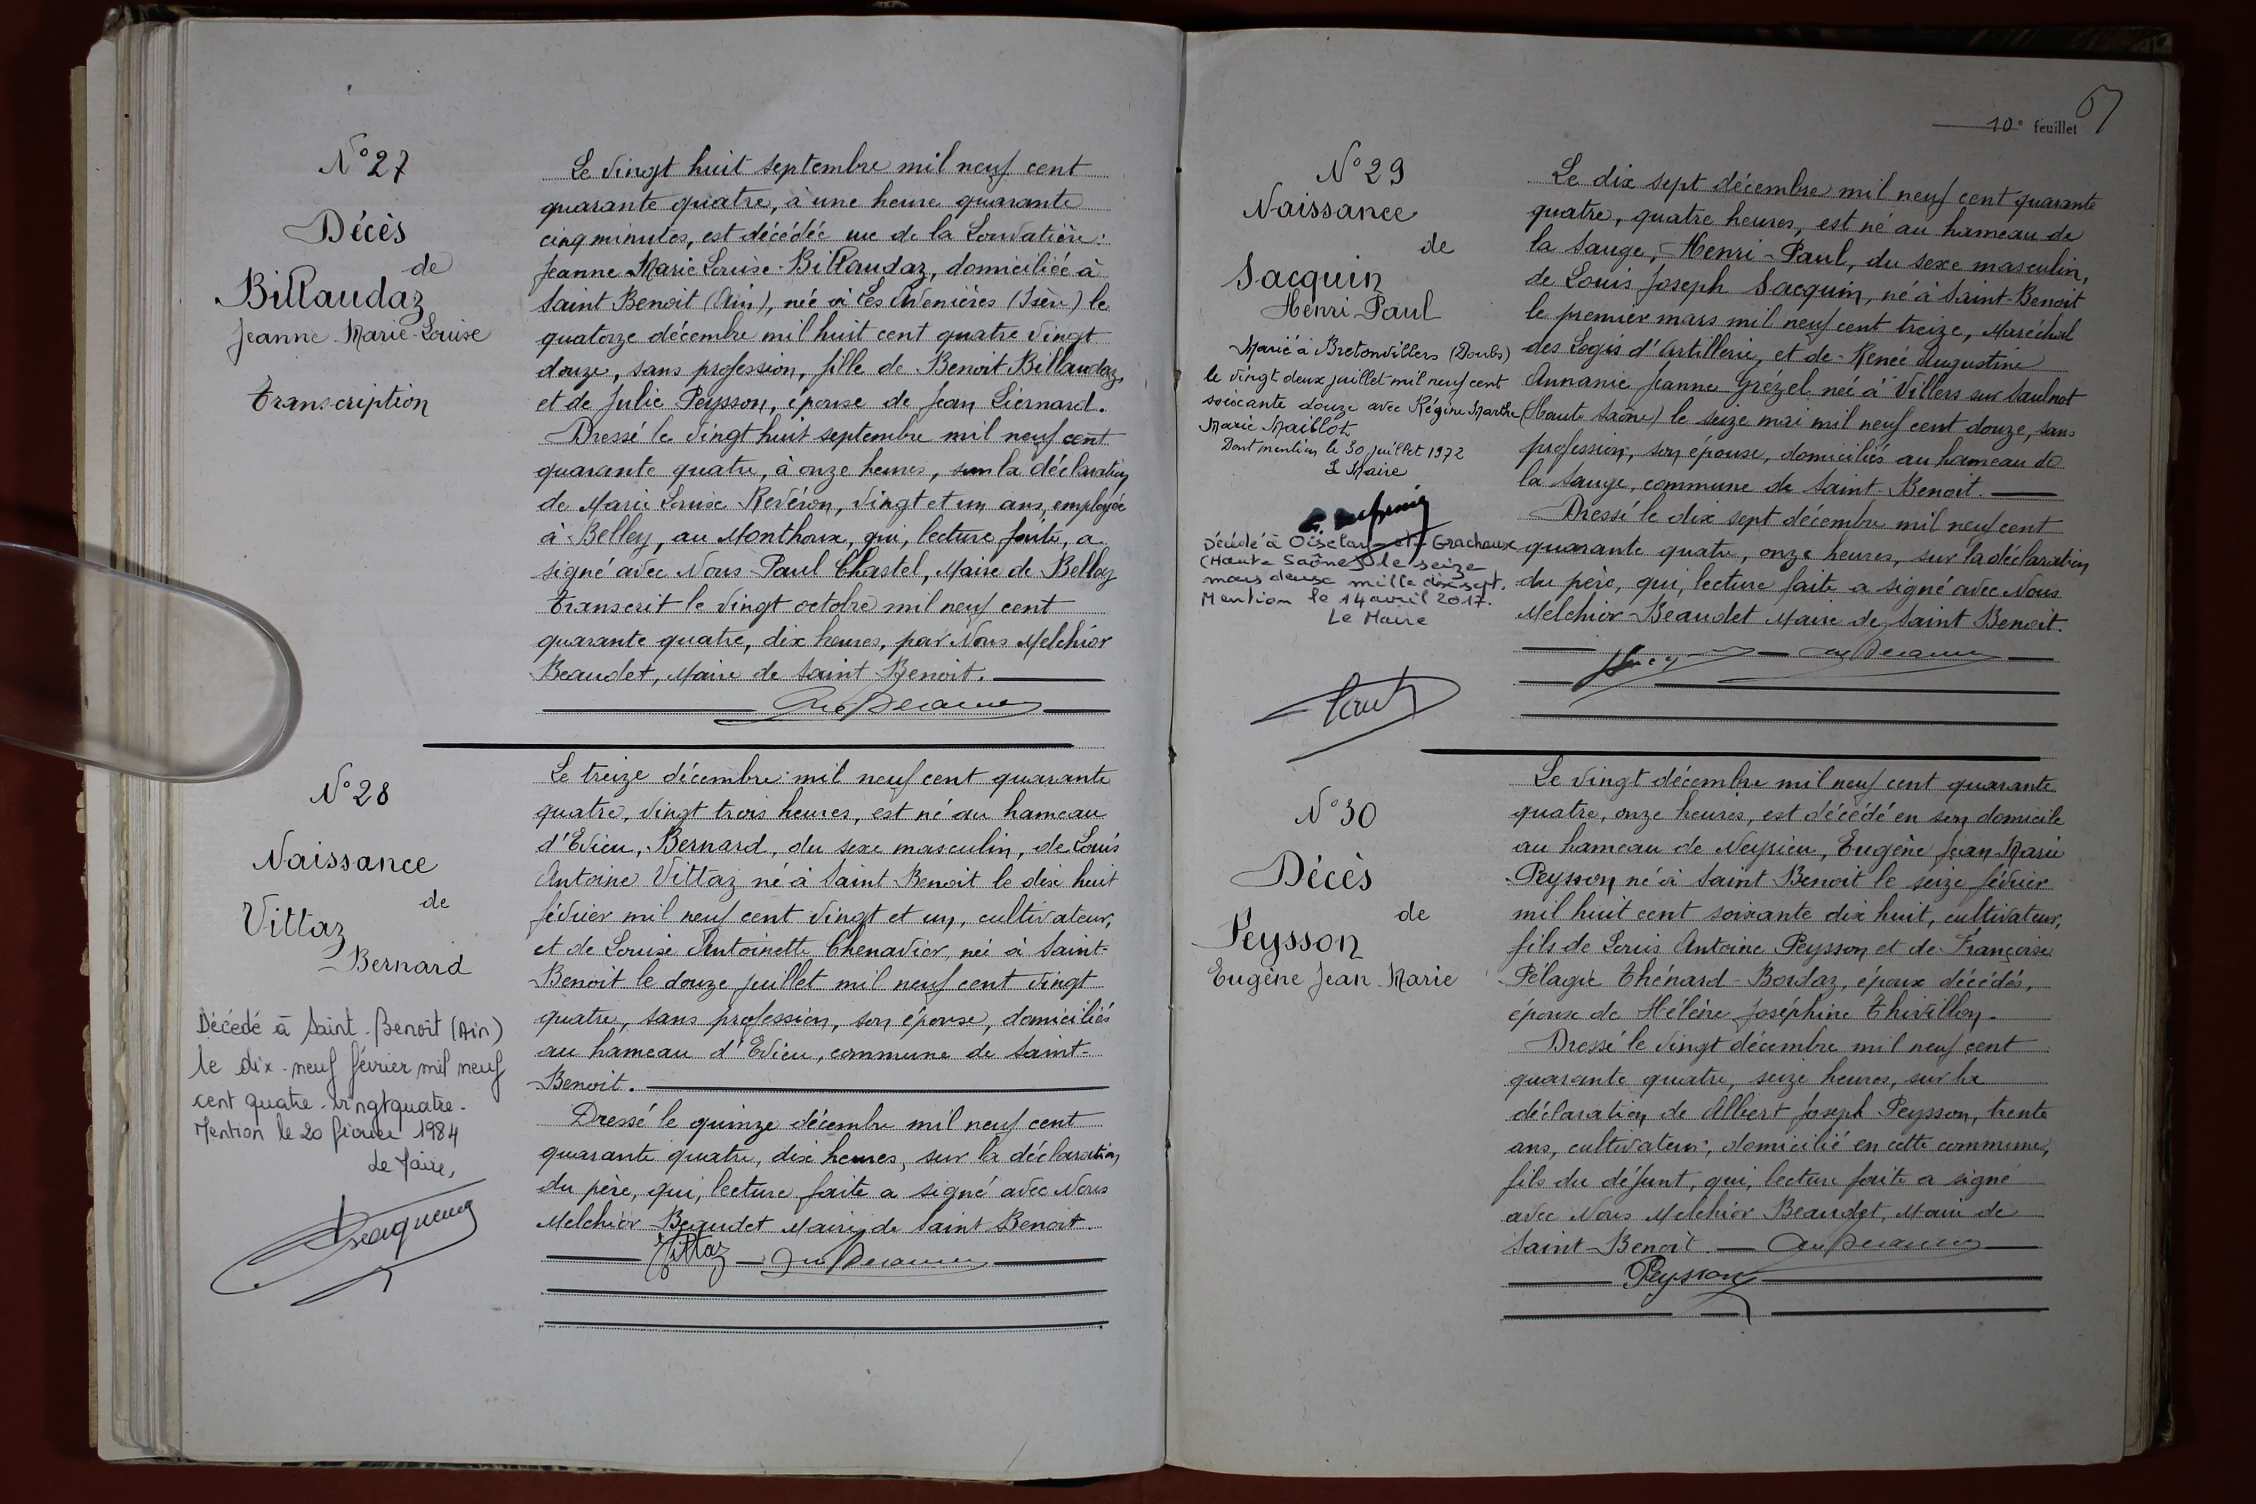 N° 27
Décès
de
Billaudaz
Jeanne Marie-Louise
Transcription
Le vingt huit septembre mil neuf cent
quarante quatre, à une heure quarante
cinq minutes, est décédée rue de la Louvatière:
Jeanne Marie Louise Billaudaz, domiciliée à
Saint Benoit (Ain), née à Les Avenières (Isère) le
quatorze décembre mil huit cent quatre vingt
douze, sans profession, fille de Benoit Billaudaz,
et de Julie Peysson, épouse de Jean Liernard.
Dressé le vingt huit septembre mil neuf cent
quarante quatre, à onze heures, sur la déclaration
de Marie Louise Revéron, vingt et un ans, employée
à Belley, au Monthoux, qui, lecture faite, a
signé avec Nous Paul Chastel, Maire de Belley
Transcrit le vingt octobre mil neuf cent
quarante quatre, dix heures, par Nous Melchior
Beaudet, Maire de Saint Benoit.
N° 28
Naissance
de
Vittaz
Bernard
Décédé à Saint-Benoît (Ain)
le dix-neuf février mil neuf
cent quatre-vingt quatre-
Mention le 20 février 1984
Le Maire,
Le treize décembre mil neuf cent quarante
quatre, vingt trois heures, est né au hameau
d'Evieu, Bernard, du sexe masculin, de Louis
Antoine Vittaz né à Saint Benoit le dix huit
février mil neuf cent vingt et un, cultivateur,
et de Louise Antoinette Chenavier, née à Saint-
Benoit le douze juillet mil neuf cent vingt
quatre, sans profession, son épouse, domiciliés
au hameau d'Evieu, commune de Saint-
Benoit.
Dressé le quinze décembre mil neuf cent
quarante quatre, dix heures, sur la déclaration
du père, qui, lecture faite a signé avec Nous
Melchior Beaudet Maire de Saint Benoit
Vittaz
10e feuillet
67
N° 29
Naissance
de
Sacquin
Henri-Paul
Marié à Bretonvillers (Doubs)
le vingt deux juillet mil neuf cent
soixante douze avec Régine Marthe
Marie Maiblot.
Dont mention le 30 juillet 1972
Le Maire
Décédé à Oiselay-et-Grachaux
(Haute Saône) le seize
mars deux mille dix sept.
Mention le 14 avril 2017.
Le Maire
Le dix sept décembre mil neuf cent quarante
quatre, quatre heures, est né au hameau de
la Sauge, Henri-Paul, du sexe masculin,
de Louis Joseph Sacquin, né à Saint-Benoit
le premier mars mil neuf cent treize, Maréchal
des Logis d'Artillerie, et de Renée Augustine
Annanie Jeanne Grézel née à Villers sur Saulnot
(Haute Saône) le seize mai mil neuf cent douze, sans
profession, son épouse, domiciliés au hameau de
la Sauge, commune de Saint-Benoit.
Dressé le dix sept décembre mil neuf cent
quarante quatre, onze heures, sur la déclaration
du père, qui, lecture faite a signé avec Nous
Melchior Beaudet Maire de Saint Benoit.
N° 30
Décès
de
Peysson
Eugène Jean Marie
Le vingt décembre mil neuf cent quarante
quatre, onze heures, est décédé en son domicile
au hameau de Neyrieu, Eugène Jean Marie
Peysson né à Saint Benoit le seize février
mil huit cent soixante dix huit, cultivateur,
fils de Louis Antoine Peysson et de Françoise
Pélagie Thénard-Bordaz, époux décédés,
époux de Hélène Joséphine Thivillon.
Dressé le vingt décembre mil neuf cent
quarante quatre, seize heures, sur la
déclaration de Albert Joseph Peysson, trente
ans, cultivateur, domicilié en cette commune,
fils du défunt, qui, lecture faite a signé
avec Nous Melchior Beaudet, Maire de
Saint-Benoit.
Peysson